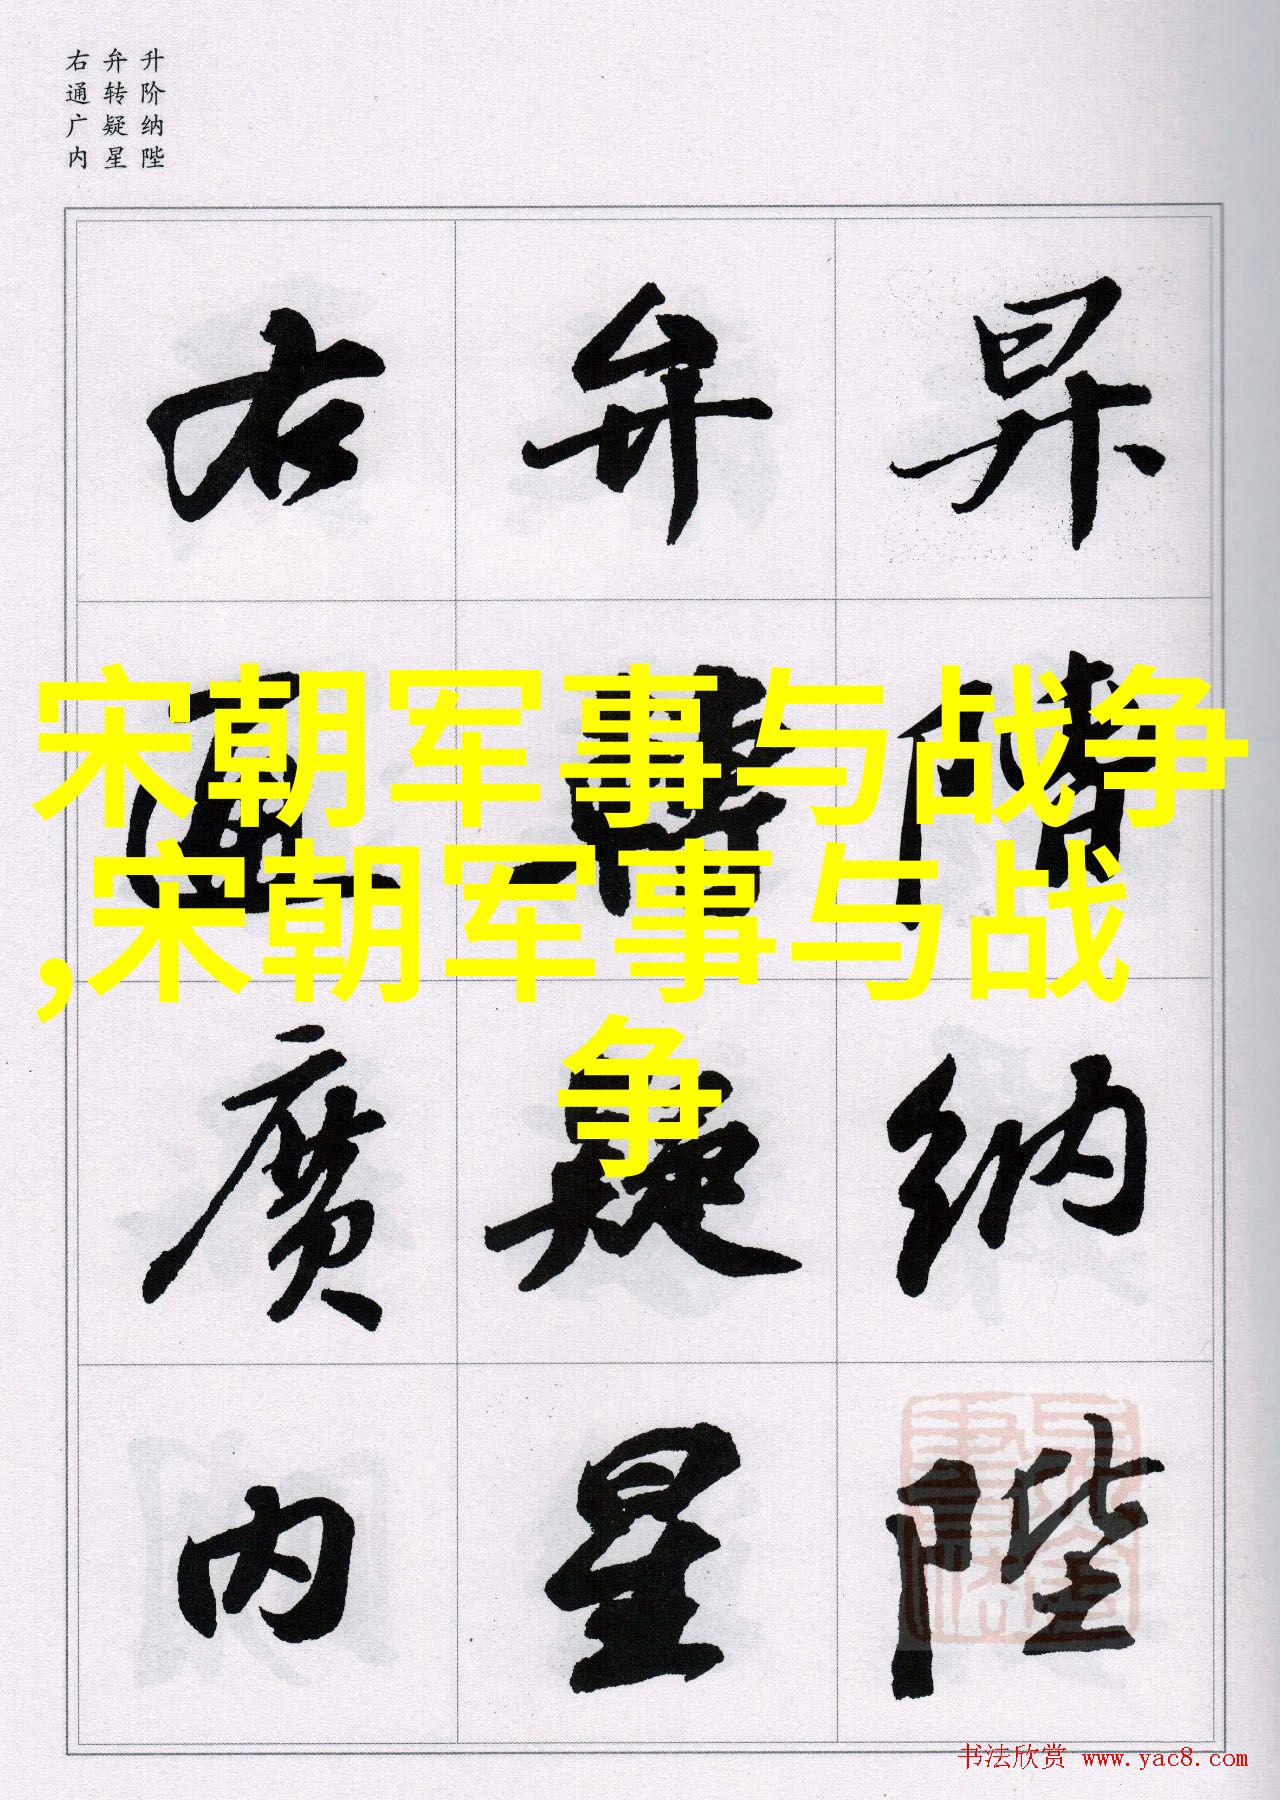 升阶纳陛
弁转疑星
右通广内
昇階納陛
弁轉疑星
右通廣内
宋朝军事与战争
,宋朝军事与战
争
书法欣赏 www.yac8.com